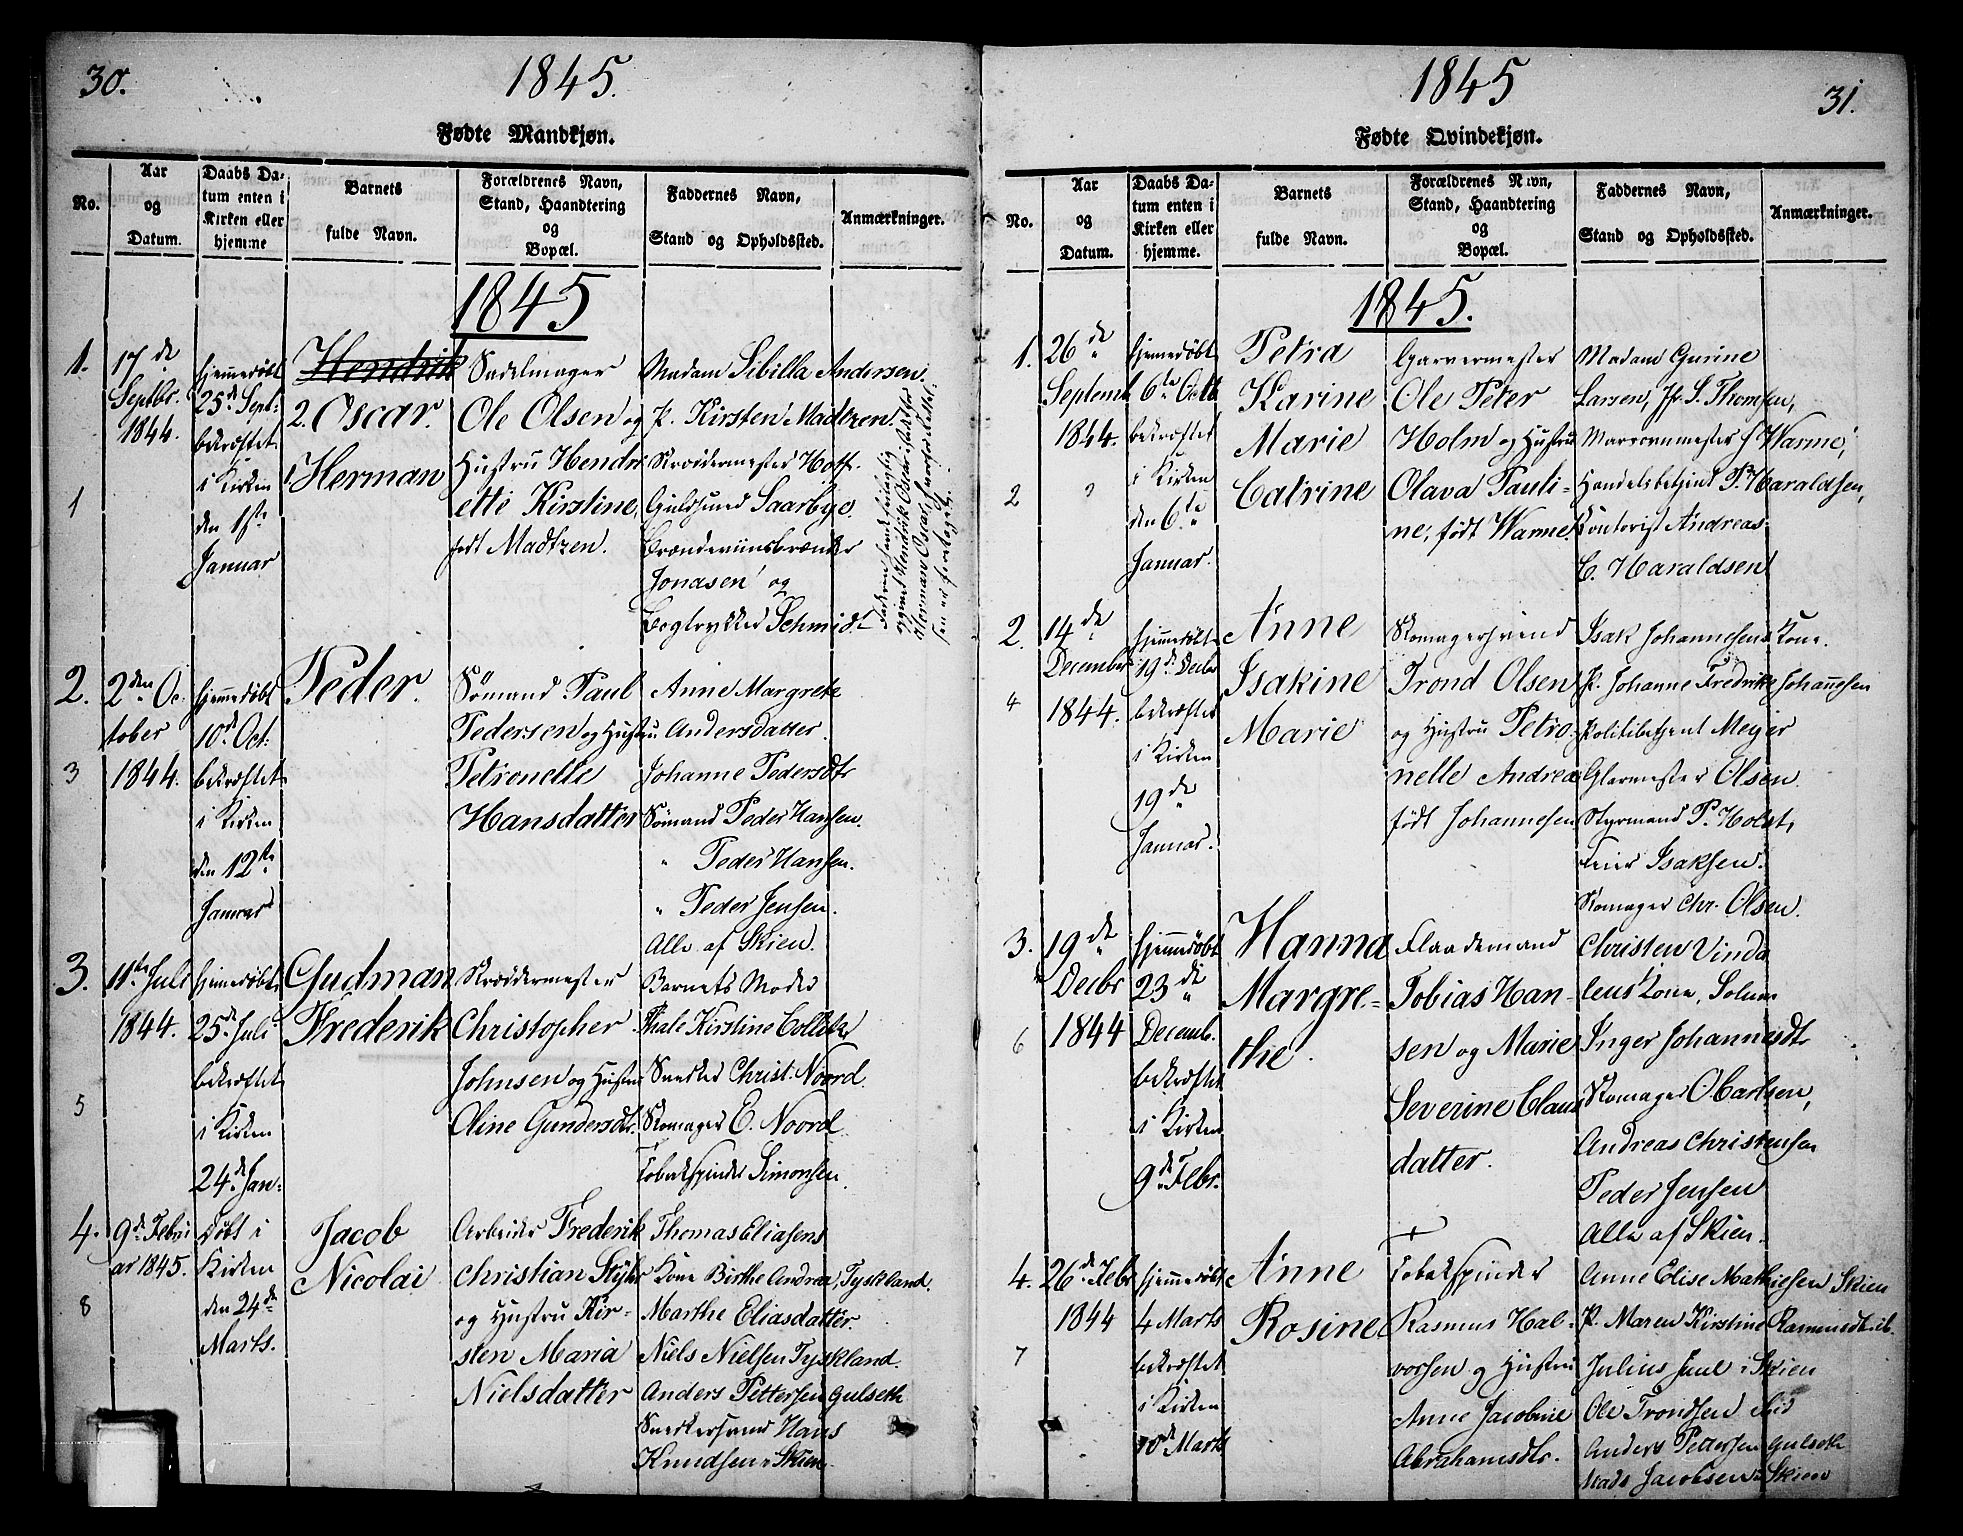 30.
1845.
Fødte Mandkjøn.
No.
Aar
og
Datum.
Daabs Da-
tum enten i
Kirken eller
hjemme
Barnets
fulde Navn.
Forældrenes Navn,
Stand, Haandtering
og
Bopæl.
Faddernes Navn,
Stand og Opholdssted.
Anmærkninger.
1845
1.
1
17de
Septbr.
1844.
hjemmedøbt
25de Sept:
bekræftet
i Kirken
den 1ste
Januar
Hendrik
2. Oscar.
1. Herman
Sadelmager
Ole Olsen og
Hustru Hendri
ette Kirstine,
født Madtzen.
Madam Sibilla Andersen.
P. Kirsten Madtzen.
Skræddermester Hoff.
Guldsmed Saarbye.
Brændeviinsbrænder
Jonasen og
Bogtrykker Schmidt
2.
3
2den Oc
tober
1844.
hjemmedøbt
10de Oct:
bekræftet
i Kirken
den 12te
Januar
Peder.
Sømand Paul
Pedersen og Hustru
Petronelle
Hansdatter
Anne Margrete
Andersdatter.
Johanne Pedersdtr
Sømand Peder Hansen.
" Peder Hansen.
" Peder Jensen.
Alle af Skien.
3.
5
11te Juli
1844.
hjemmedøbt
25de Juli
bekræftet
i Kirken
24de Jan:
Gudman
Frederik
Skræddermester
Christopher
Johnsen og Hustru
Oline Gundersdtr.
Barnets Moder
Thale Kirstine Collett
Snedker Christ. Noord.
Skomager E. Noord
Tobakspinder Simonsen.
4.
8
9de Febru
ar 1845.
Døbt i
Kirken
den 24de
Marts.
Jacob
Nicolai
Arbeider Frederik
Christian Styhr
og Hustru Kir-
sten Maria
Nielsdatter
Thomas Eliasens
Kone Birthe Andrea, Tyskland.
Marthe Eliasdatter.
Niels Nielsen Tyskland.
Anders Pettersen Gulseth
Snedkersvend Hans
Knudsen i Skien.
1845
31.
Fødte Qvindekjøn.
No.
Aar
og
Datum.
Daabs Da-
tum enten i
Kirken eller
hjemme.
Barnets
fulde Navn.
Forældrenes Navn,
Stand, Haandtering
og
Bopæl.
Faddernes Navn,
Stand og Opholdssted.
Anmærkninger.
1845.
1.
2
26de
Septemb
1844.
hjemmedøbt
6te Octb
bekræftet
i Kirken
den 6te
Januar.
Petra
Karine
Marie
Catrine
Garvermester
Ole Peter
Holm og Hustru
Olava Pauli-
ne, født Warme
Madam Gurine
Larsen, Jfr S. Thomsen,
Warme,
Handelsbetjent P. Haraldsen,
Contorist Andreas
C. Haraldsen
2.
4
14de
December
1844.
hjemmedøbt
19de Decbr
bekræftet
i Kirken
19de
Januar.
Anne
Isakine
Marie
Skomagersvend
Trond Olsen
og Hustru Petro-
nelle Andrea
født Johannesen
Isak Johannesens Kone.
P. Johanne Fredrike Johannesen
Politibetjent Meyer
Glarmester Olsen.
Styrmand P. Holst,
Feier Isaksen.
Skomager Chr. Olsen.
3.
6
19de
Decbr
1844
hjemmedøbt
23de
Decemb.
bekræftet
i Kirken
9de Febr.
Hanna
Margre-
the.
Flaademand
Tobias Han-
sen og Marie
Severine Claus
datter.
Christen Vinda
lens Kone, Solum
Inger Johannesdtr
Skomager O. Carlsen,
Andreas Christensen
Peder Jensen
Alle af Skien.
4.
7
26de Febr
1844
hjemmedøbt
4 Marts
bekræftet
i Kirken
10de Marts
Anne
Rosine
Tobakspinder
Rasmus Hal-
vorsen og Hustru
Anne Jacobine
Abrahamsdtr.
Anne Elise Mathiesen Skien
P. Maren Kirstine
Julius Juul i Skien
Ole Trondsen
Anders Pettersen Gulseth
Mads Jacobsen i Skien